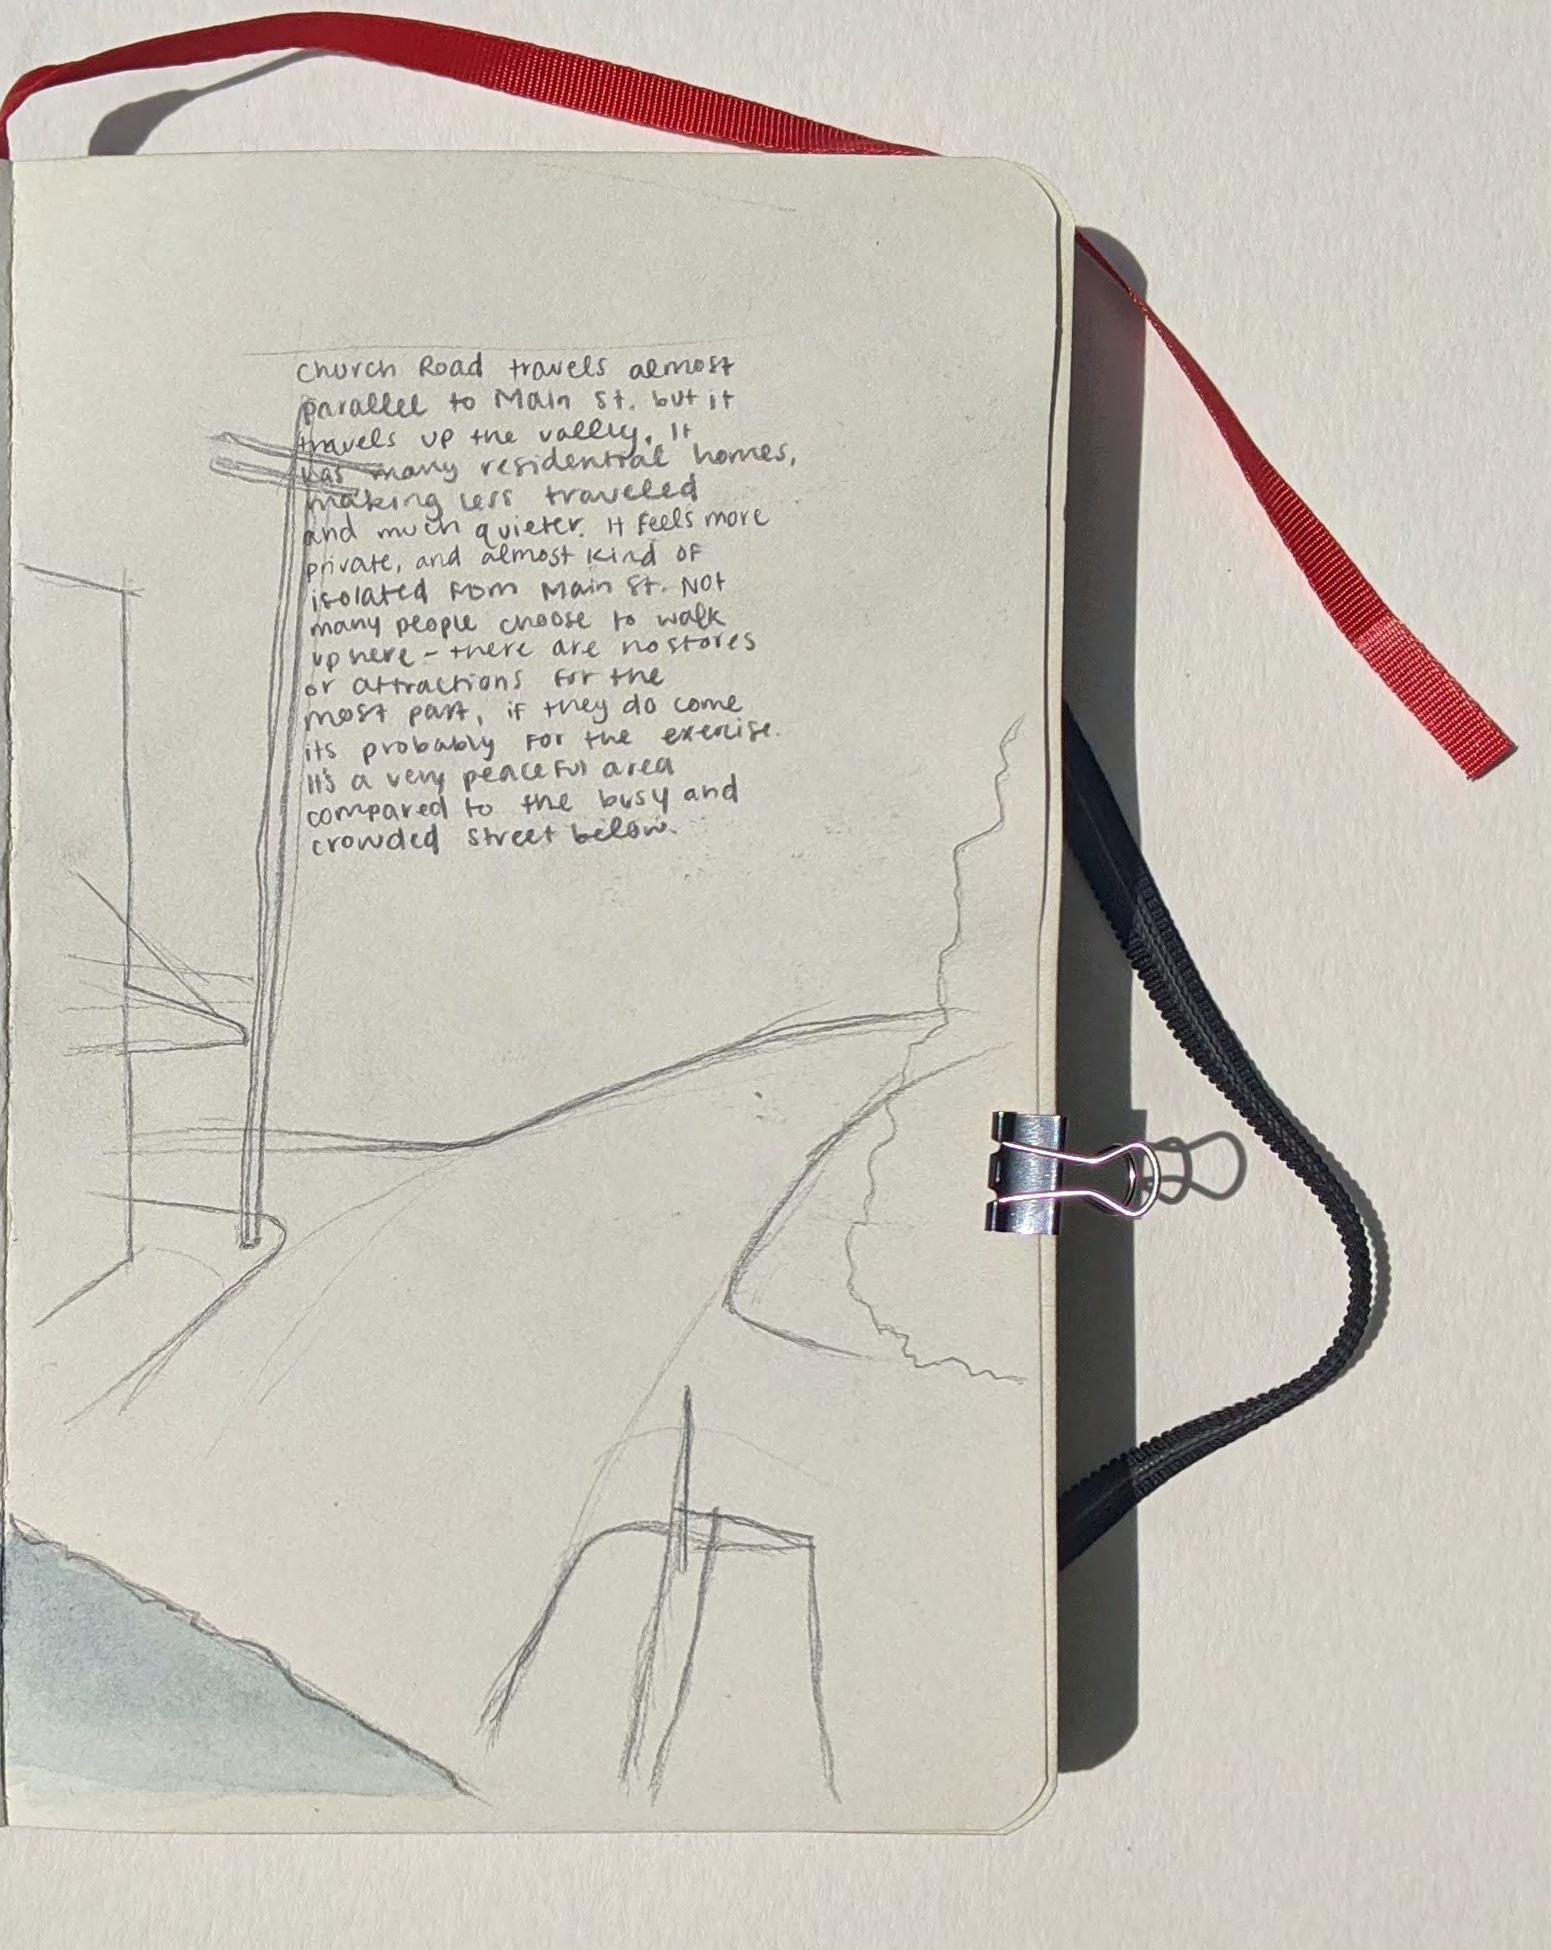 Church Road travels almost
parallel to Main St. but it
travels up the valley. It
has many residential homes,
making less traveled
and much quieter. It feels more
private, and almost kind of
isolated from Main St. Not
many people choose to walk
up here - there are no stores
or attractions for the
most part, if they do come
its probably for the exercise.
It's a very peaceful area
compared to the busy and
crowded street below.